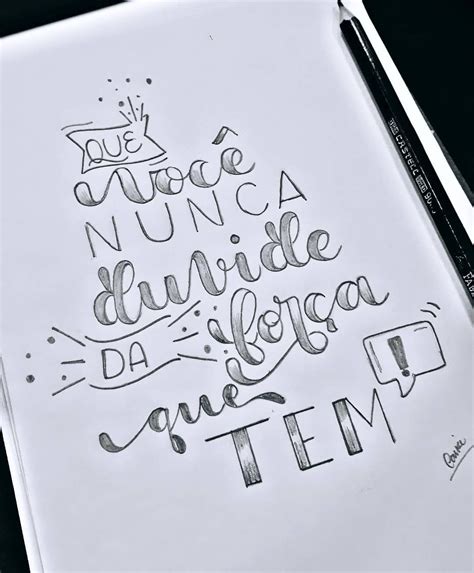 QUE
você
NUNCA
duvide
DA força
que TEM!
CASTELL 90
FAB